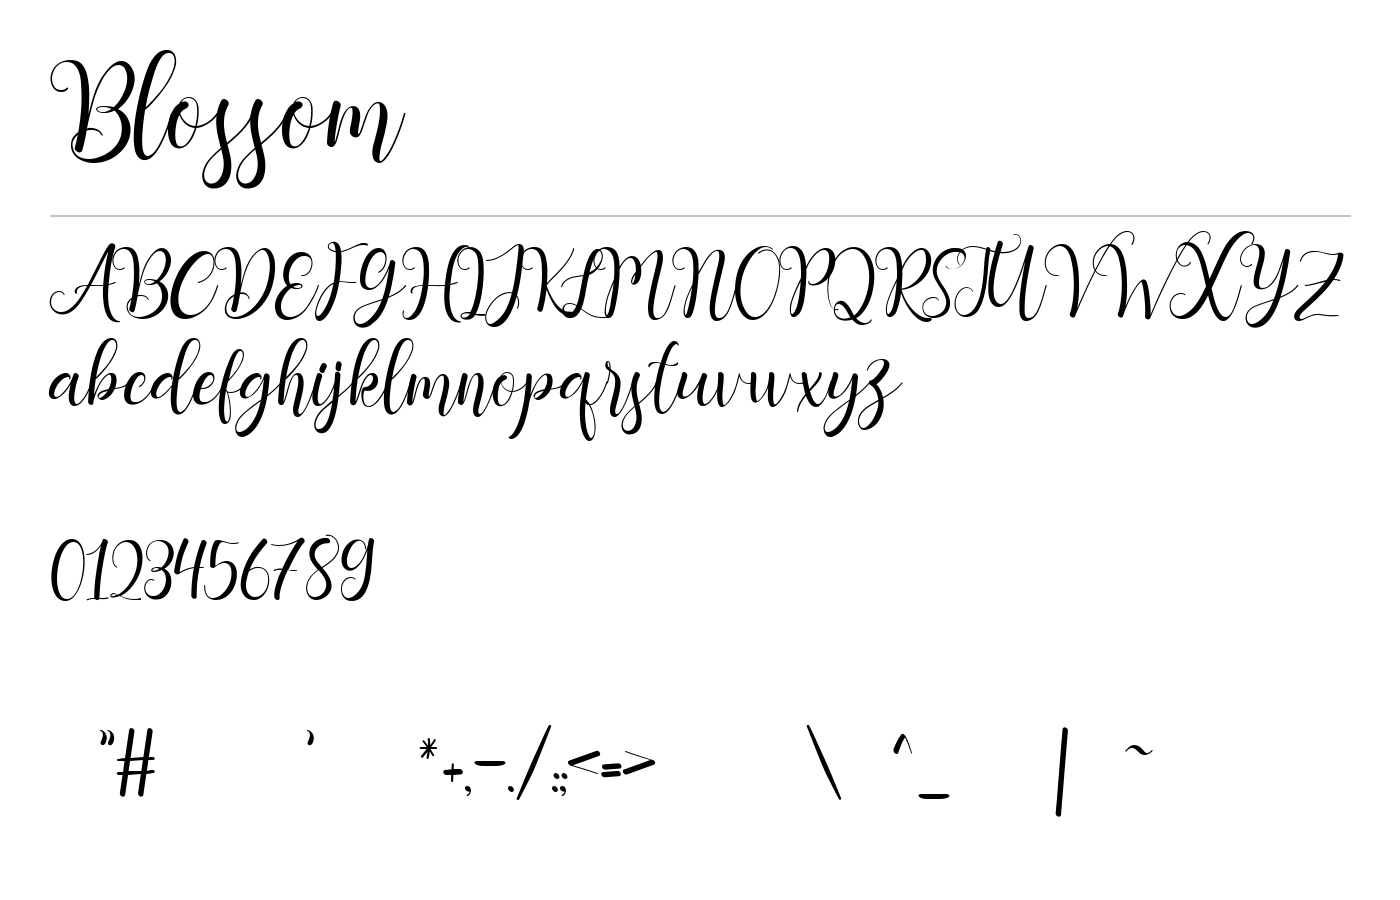 Blossom
ABCDEFGHIJKLMNOPQRSTUVWXYZ
abcdefghijklmnopqrstuvwxyz
0123456789
"# ' *+,-./:;<=> \ ^_ | ~